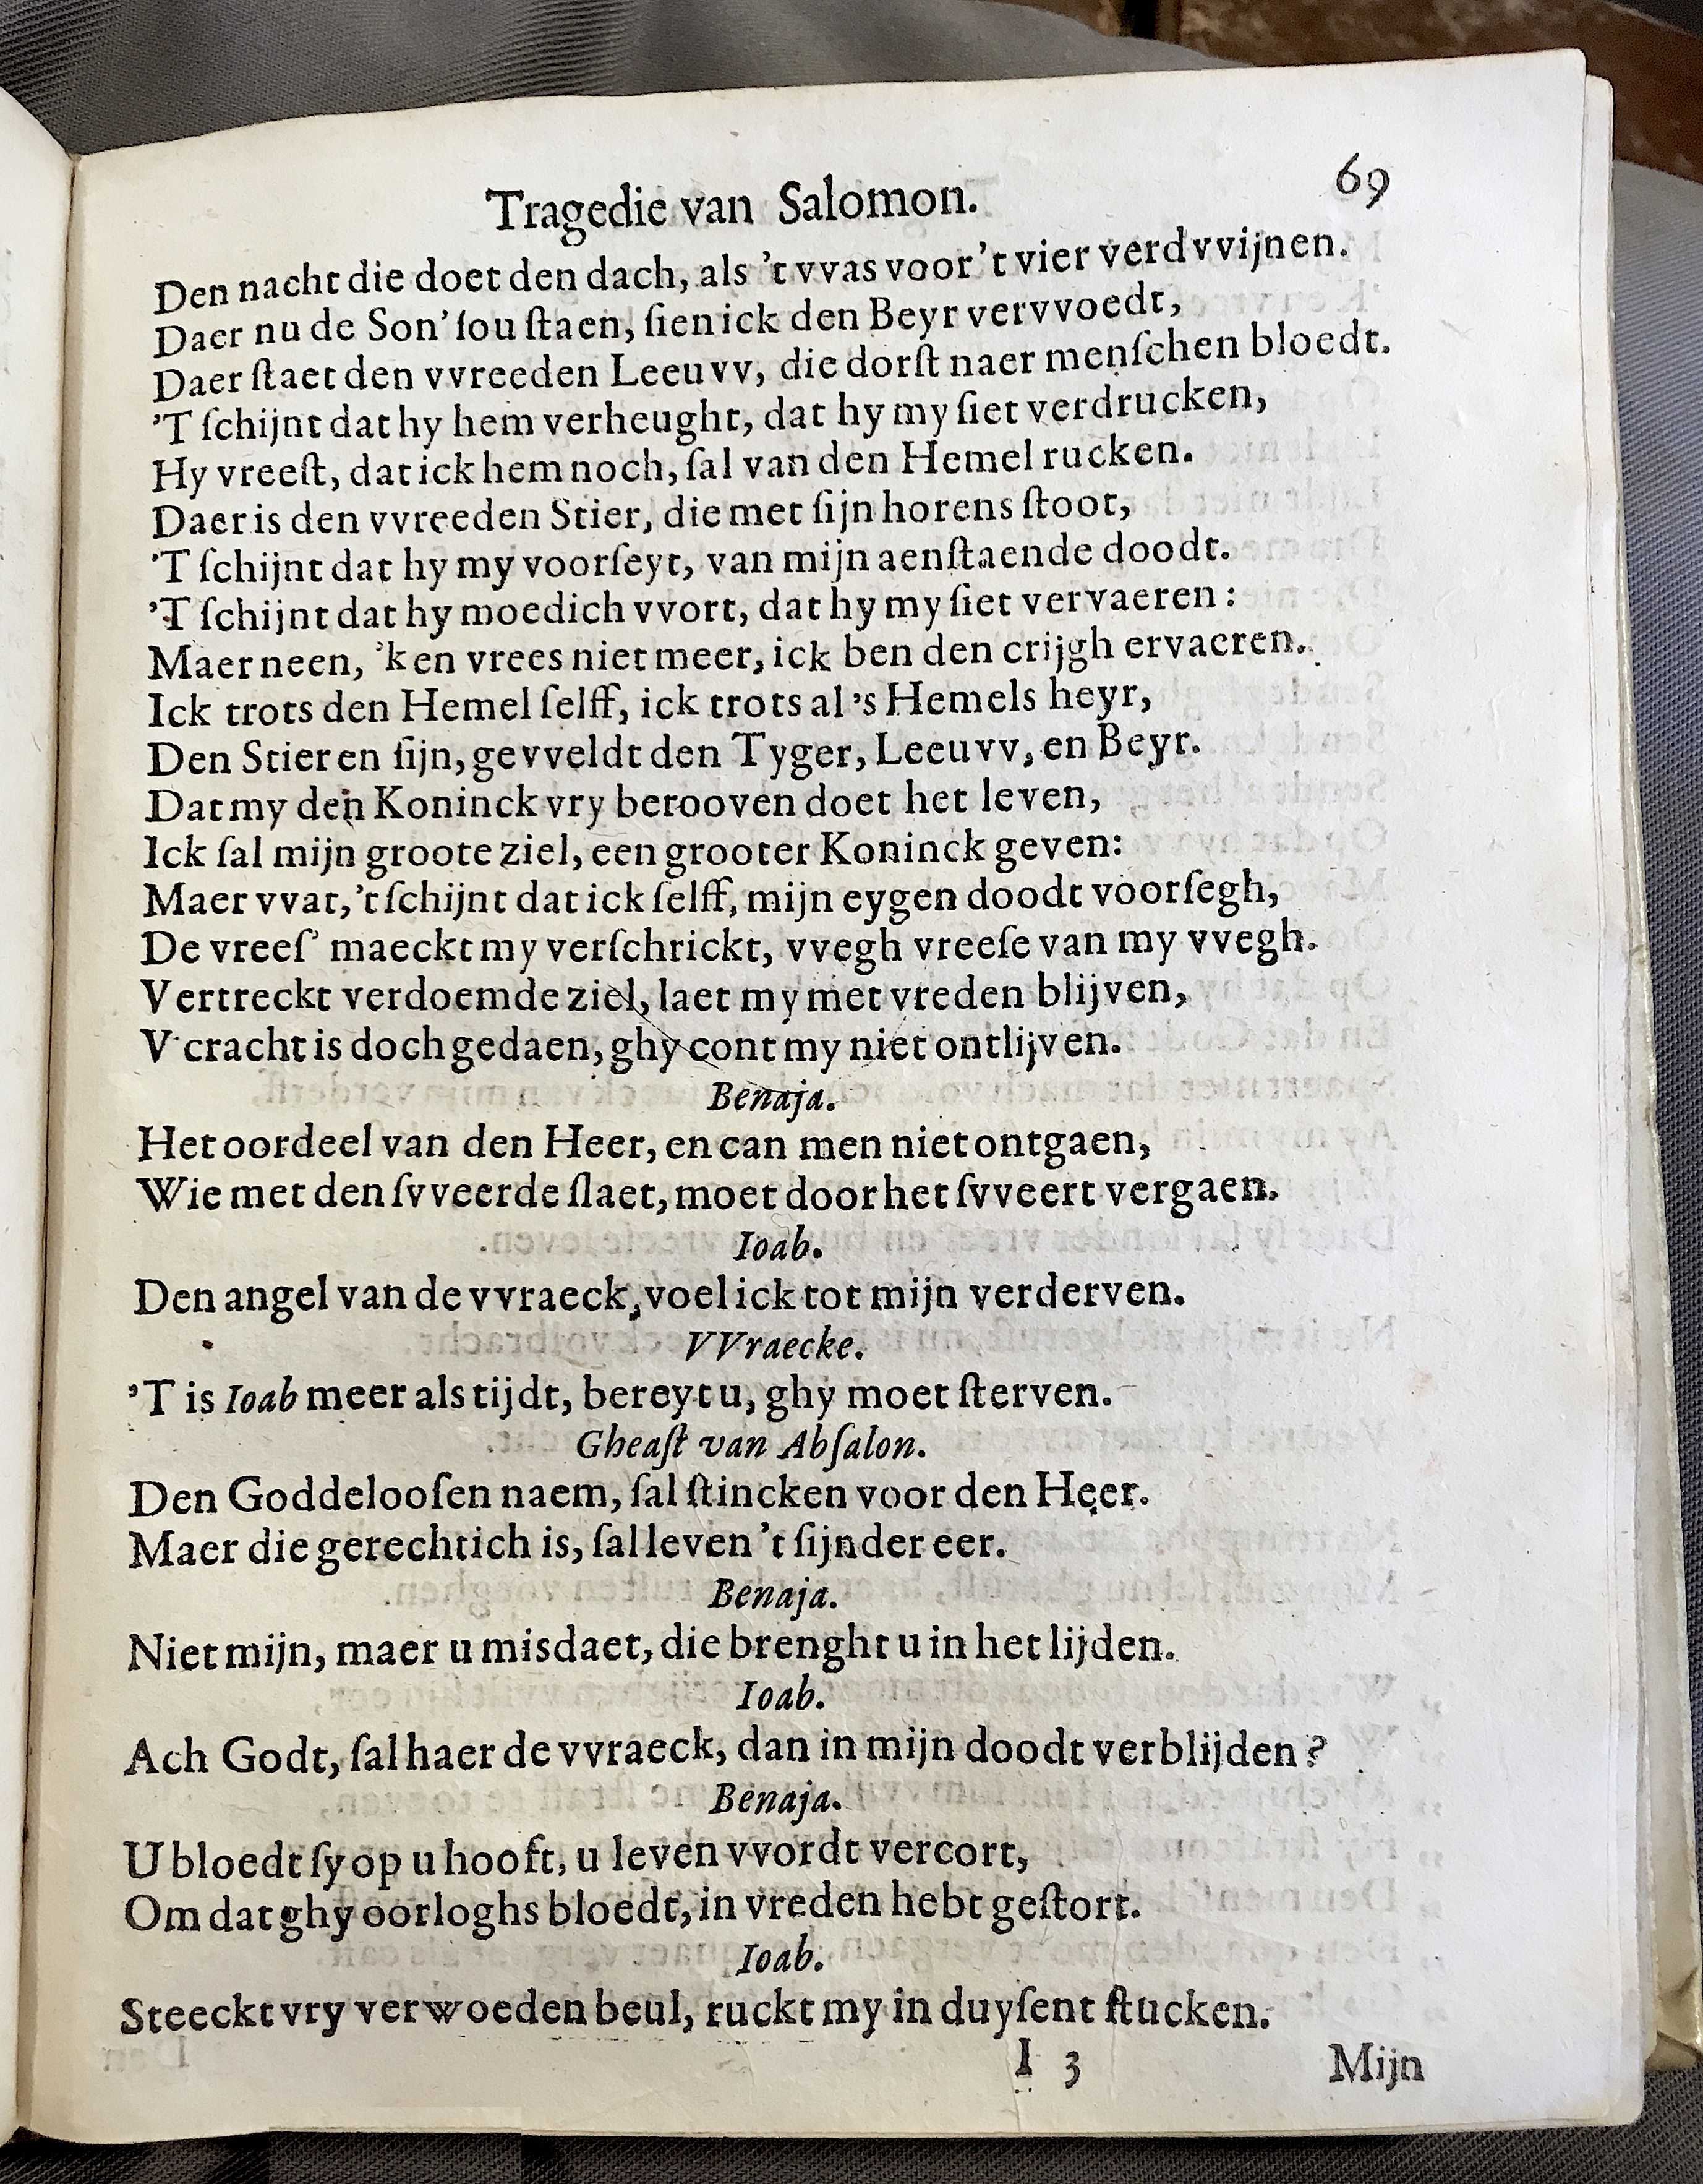 Tragedie van Salomon. 69
Den nacht die doet den dach, als 't vvas voor 't vier verdvvijnen.
Daer nu de Son' ſou ſtaen, ſien ick den Beyr vervvoedt,
Daer ſtaet den vvreeden Leeuvv, die dorſt naer menſchen bloedt.
'T ſchijnt dat hy hem verheught, dat hy my ſiet verdrucken,
Hy vreeſt, dat ick hem noch, ſal van den Hemel rucken.
Daer is den vvreeden Stier, die met ſijn horens ſtoot,
'T ſchijnt dat hy my voorſeyt, van mijn aenſtaende doodt.
'T ſchijnt dat hy moedich vvort, dat hy my ſiet vervaeren:
Maer neen, 'k en vrees niet meer, ick ben den crijgh ervaeren.
Ick trots den Hemel ſelff, ick trots al 's Hemels heyr,
Den Stier en ſijn, gevveldt den Tyger, Leeuvv, en Beyr.
Dat my den Koninck vry berooven doet het leven,
Ick ſal mijn groote ziel, een grooter Koninck geven:
Maer vvat, 't ſchijnt dat ick ſelff, mijn eygen doodt voorſegh,
De vreeſ' maeckt my verſchrickt, vvegh vreeſe van my vvegh.
Vertreckt verdoemde ziel, laet my met vreden blijven,
V cracht is doch gedaen, ghy cont my niet ontlijven.
Benaja.
Het oordeel van den Heer, en can men niet ontgaen,
Wie met den ſvveerde ſlaet, moet door het ſvveert vergaen.
Ioab.
Den angel van de vvraeck, voel ick tot mijn verderven.
VVraecke.
'T is Ioab meer als tijdt, bereyt u, ghy moet ſterven.
Gheaſt van Abſalon.
Den Goddelooſen naem, ſal ſtincken voor den Heer.
Maer die gerechtich is, ſal leven 't ſijnder eer.
Benaja.
Niet mijn, maer u misdaet, die brenght u in het lijden.
Ioab.
Ach Godt, ſal haer de vvraeck, dan in mijn doodt verblijden?
Benaja.
U bloedt ſy op u hooft, u leven vvordt vercort,
Om dat ghy oorloghs bloedt, in vreden hebt geſtort.
Ioab.
Steeckt vry verwoeden beul, ruckt my in duyſent ſtucken.
I 3 Mijn